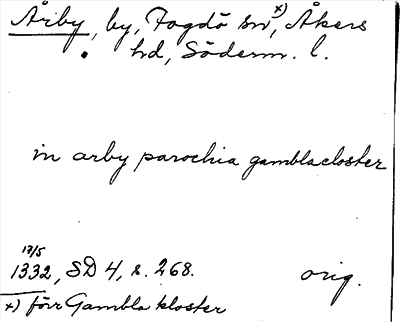 Årby, by, Fogdö sn, x) Åkers
hd, Söderm. l.
in arby parochia gamblacloster
17/5
1332, SD 4, s. 268. orig.
x) förr Gambla kloster